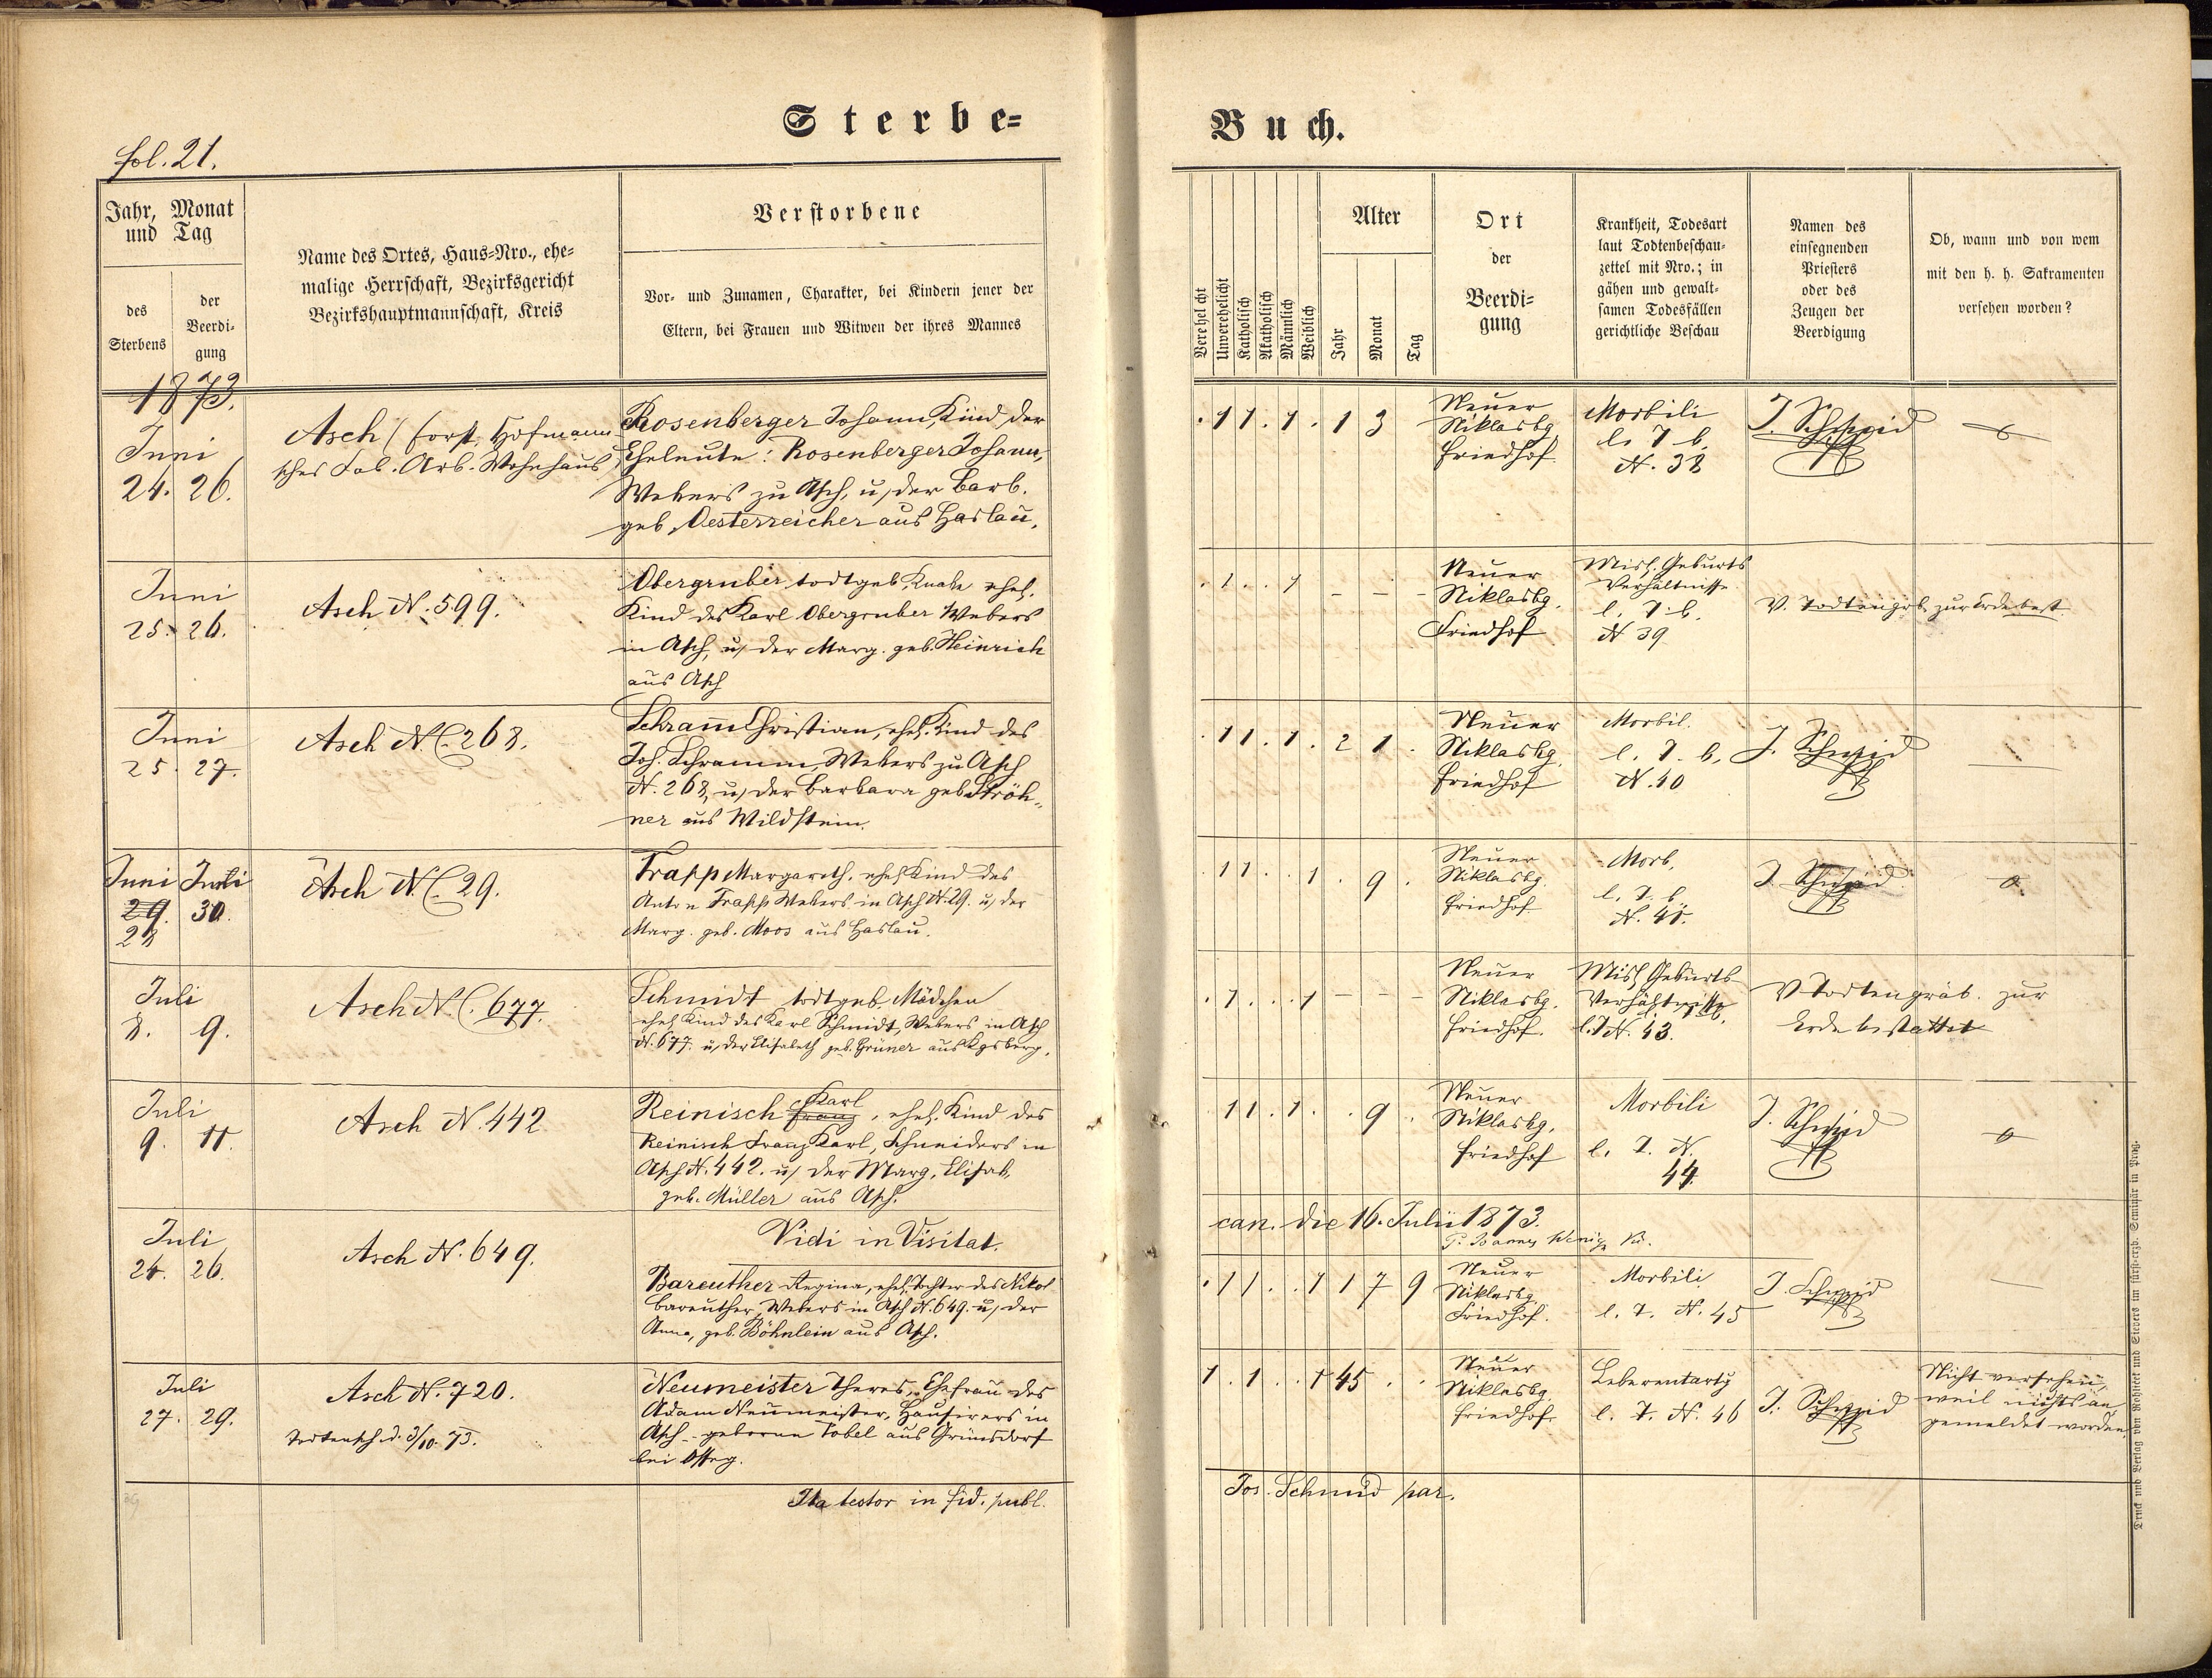 Sterbe=
Buch.
fol. 21.
Jahr, Monat
und Tag
des
Sterbens
der
Beerdi=
gung
Name des Ortes, Haus=Nro., ehe=
malige Herrschaft, Bezirksgericht
Bezirkshauptmannschaft, Kreis
Verstorbene
Vor= und Zunamen, Charakter, bei Kindern jener der
Eltern, bei Frauen und Witwen der ihres Mannes
Verehelicht
Unverehelicht
Katholisch
Akatholisch
Männlich
Weiblich
Alter
Jahr
Monat
Tag
Ort
der
Beerdi=
gung
Krankheit, Todesart
laut Todtenbeschau=
zettel mit Nro.; in
gähen und gewalt=
samen Todesfällen
gerichtliche Beschau
Namen des
einsegnenden
Priesters
oder des
Zeugen der
Beerdigung
Ob, wann und von wem
mit den h. h. Sakramenten
versehen worden?
1873.
Juni
24. 26.
Asch (forst, Hofmann
sches Fab. Arb. Wohnhaus
Rosenberger Johann, Kind der
Eheleute: Rosenberger Johann,
Webers zu Asch, u. der Barb.
geb. Oesterreicher aus Haslau.
. 1 1 . 1 . 1 3
Neuer
Niklasbg.
Friedhof.
Morbili
l. T. b.
N. 38
J. Schmid
Juni
25. 26.
Asch N. 599.
Obergruber, todtgeb. Knabe ehel.
Kind des Karl Obergruber Webers
in Asch, u. der Marg. geb. Heinrich
aus Asch
. 1 . . 1 - - -
Neuer
Niklasbg.
Friedhof
Misl. Geburts
Verhältnisse
l. T. b.
N 39
V. Todtengrb. zur Erde best.
Juni
25. 27.
Asch N. C. 268.
Schram̄ Christian, ehel. Kind des
Joh. Schramm, Webers zu Asch
N. 268, u. der Barbara geb. Ströh=
ner aus Wildstein.
. 1 1 . 1 . 2 1 .
Neuer
Niklasbg.
Friedhof
Morbil.
l. T. b.
N. 40
J. Schmid
Juni Juli
29. 30.
28
Asch N. C. 29.
Trapp Margareth, ehel. Kind des
Anton Trapp Webers in Asch N. 29. u. der
Marg. geb. Moos aus Haslau.
. 1 1 . . 1 . 9 .
Neuer
Niklasbg.
Friedhof
Morb.
l. T. b.
N. 41.
J. Schmid
Juli
8. 9.
Asch N. C. 677.
Schmidt todtgeb. Mädchen
ehel. Kind des Karl Schmidt, Webers in Asch
N. 677. u. der Elisabeth geb. Grüner aus Kgsberg.
. 1 . . . 1 - - -
Neuer
Niklasbg.
Friedhof.
Misl. Geburts
Verhältnisse.
l. T. N. 43.
V. Todtengräb. zur
Erde bestattet
Juli
9. 11.
Asch N. 442
Karl
Reinisch Franz, ehel. Kind des
Reinisch Franz Karl, Schneiders in
Asch N. 442. u. der Marg. Elisab.
geb. Müller aus Asch.
. 1 1 . 1 . . 9 .
Neuer
Niklasbg.
Friedhof
Morbili
l. T. N.
44.
J. Schmid
Vidi in Visitat.
can. die 16. Julii 1873.
Juli
24. 26.
Asch N. 649.
Bareuther Regina, ehel. Tochter des Nikol
Bareuther, Webers in Asch N. 649. u. der
Anna, geb. Böhnlein aus Asch.
. 1 1 . . 1 1 7 9
Neuer
Niklasbg.
Friedhof.
Morbili
l. T. N. 45
J. Schmid
Juli
27. 29.
Asch N. 720.
Todtensch. d. 3/10. 73.
Neumeister Theres, Ehefrau des
Adam Neumeister, Hausirers in
Asch - geborne Tobel aus Grünsdorf
bei Osseg.
1 . 1 . . 1 45 . .
Neuer
Niklasbg.
Friedhof
Leberentartg
l. T. N. 46
J. Schmid
Nicht versehen,
weil nichts an
gemeldet worden.
Ita testor in fid. publ.
Jos. Schmid par.
Druck und Verlag von Rohliček und Sievers im fürst=erzb. Seminär in Prag.